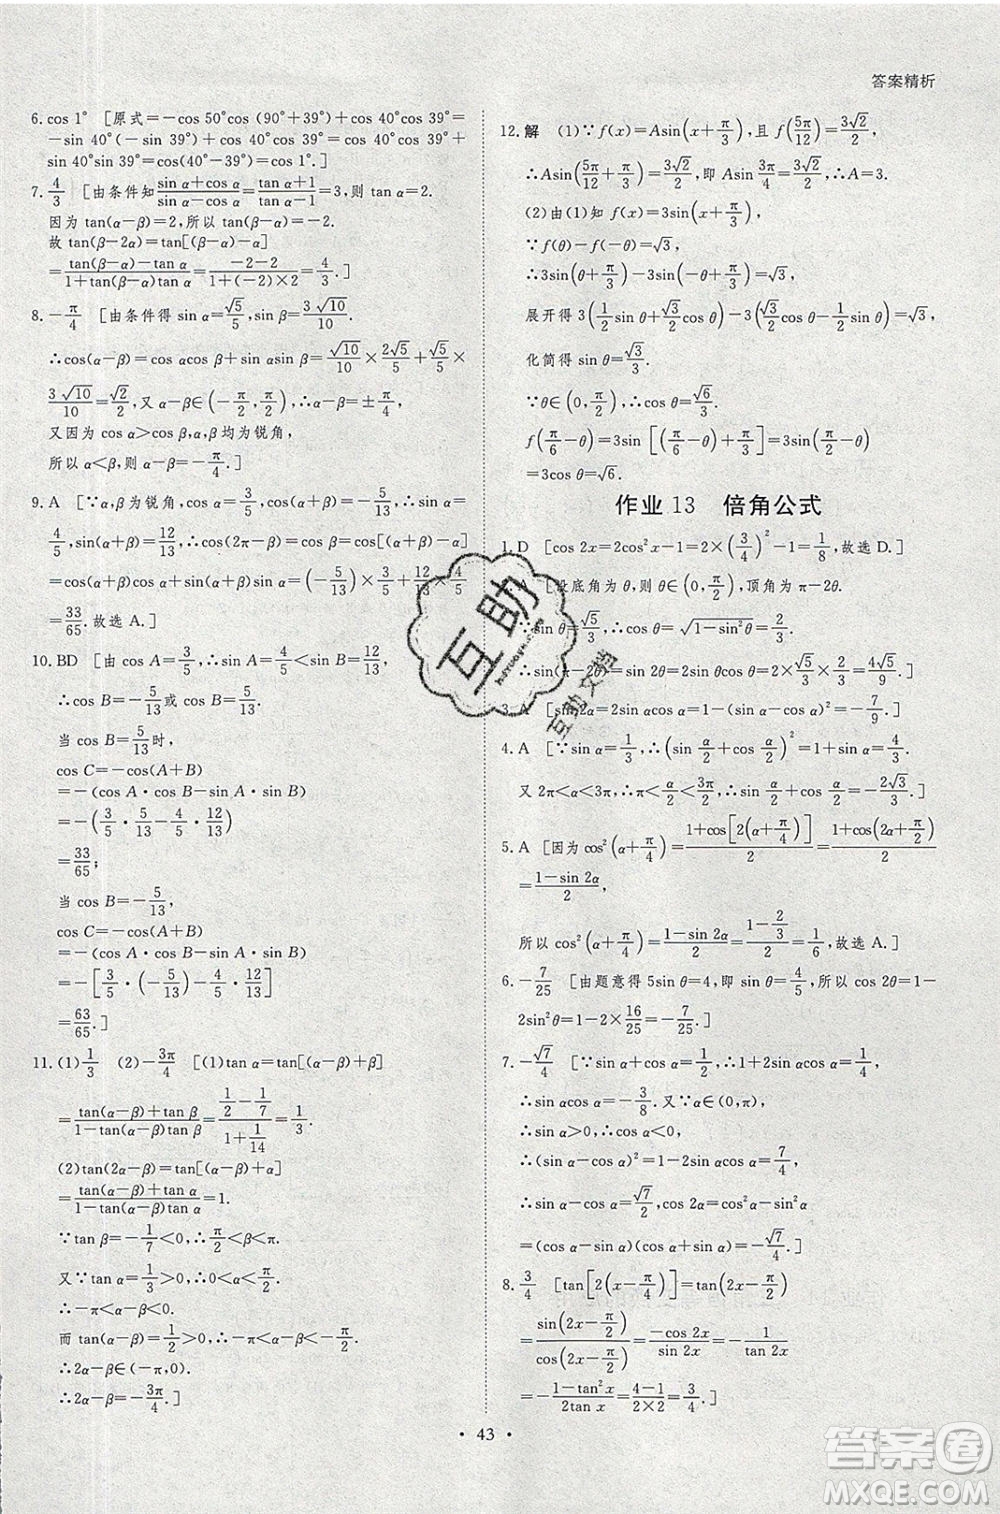 答案精析
6. cos 1° [原式=−cos 50°cos(90°+39°)+cos 40°cos 39°=
−sin 40°(−sin 39°)+cos 40°cos 39°=cos 40°cos 39°+
sin 40°sin 39°=cos(40°−39°)=cos 1°.]
7. 4/3 [由条件知(sin α+cos α)/(sin α−cos α)=(tan α+1)/(tan α−1)=3,则 tan α=2.
因为 tan(α−β)=2,所以 tan(β−α)=−2.
故 tan(β−2α)=tan[(β−α)−α]
=(tan(β−α)−tan α)/(1+tan(β−α)tan α)=(−2−2)/(1+(−2)×2)=4/3.]
8. −π/4 [由条件得 sin α=√5/5,sin β=3√10/10,
∴cos(α−β)=cos αcos β+sin αsin β=√10/10×2√5/5+√5/5×
3√10/10=√2/2,又 α−β∈(−π/2,π/2),∴α−β=±π/4,
又因为 cos α>cos β,α,β均为锐角,
所以 α<β,α−β=−π/4.]
9. A [∵α,β为锐角,cos α=3/5,cos(α+β)=−5/13,∴sin α=
4/5,sin(α+β)=12/13,∴cos(2π−β)=cos β=cos[(α+β)−α]
=cos(α+β)cos α+sin(α+β)sin α=−5/13×3/5+12/13×4/5
=33/65.故选A.]
10. BD [由 cos A=3/5,sin B=12/13,得 sin A=4/5,
∴cos B=−5/13或 cos B=5/13.
当 cos B=5/13时,
cos C=−cos(A+B)
=−(cos A·cos B−sin A·sin B)
=−(3/5·5/13−4/5·12/13)
=33/65;
当 cos B=−5/13,
cos C=−cos(A+B)
=−(cos A·cos B−sin A·sin B)
=−[3/5·(−5/13)−4/5·12/13]
=63/65.]
11. (1)1/3 (2)−3π/4 [(1)tan α=tan[(α−β)+β]
=(tan(α−β)+tan β)/(1−tan(α−β)tan β)=(1/2−1/7)/(1+1/14)=1/3.
(2)tan(2α−β)=tan[(α−β)+α]
=(tan(α−β)+tan α)/(1−tan(α−β)tan α)=1.
∵tan β=−1/7<0,∴π/2<β<π.
又∵tan α=1/3>0,∴0<α<π/2,
∴−π<α−β<0.
而 tan(α−β)=1/2>0,∴−π<α−β<−π/2.
∴2α−β∈(−π,0).
∴2α−β=−3π/4.]
12. 解 (1)∵f(x)=Asin(x+π/3),且 f(5π/12)=3√2/2,
∴Asin(5π/12+π/3)=3√2/2,即 Asin 3π/4=3√2/2,∴A=3.
(2)由(1)知 f(x)=3sin(x+π/3),
∵f(θ)−f(−θ)=√3,
∴3sin(θ+π/3)−3sin(−θ+π/3)=√3,
展开得 3(1/2sin θ+√3/2cos θ)−3(√3/2cos θ−1/2sin θ)=√3,
化简得 sin θ=√3/3.
∵θ∈(0,π/2),∴cos θ=√6/3.
f(π/6−θ)=3sin[(π/6−θ)+π/3]=3sin(π/2−θ)
=3cos θ=√6.
作业13 倍角公式
1. D [cos 2x=2cos²x−1=2×(3/4)²−1=1/8,故选D.]
[设底角为 θ,则 θ∈(0,π/2),顶角为 π−2θ.
∵sin θ=√5/3,∴cos θ=√(1−sin²θ)=2/3.
∴sin(π−2θ)=sin 2θ=2sin θcos θ=2×√5/3×2/3=4√5/9.]
3. A [sin 2α=2sin αcos α=1−(sin α−cos α)²=−7/9.]
4. A [∵sin α=1/3,∴(sin α/2+cos α/2)²=1+sin α=4/3,
又 2π<α<3π,∴π<α/2<3π/2,∴sin α/2+cos α/2=−2√3/3.]
5. A [因为 cos²(α+π/4)=(1+cos[2(α+π/4)])/2=(1+cos(2α+π/2))/2
=(1−sin 2α)/2,
所以 cos²(α+π/4)=(1−sin 2α)/2=(1−2/3)/2=1/6,故选A.]
6. −7/25 [由题意得 5sin θ=4,即 sin θ=4/5,所以 cos 2θ=1−
2sin²θ=1−2×16/25=−7/25.]
7. −√7/4 [∵sin α+cos α=1/2,∴1+2sin αcos α=1/4,
∴sin αcos α=−3/8.又∵α∈(0,π),
∴sin α>0,∴cos α<0,
∵(sin α−cos α)²=1−2sin αcos α=7/4,
∴sin α−cos α=√7/2,∴cos 2α=cos²α−sin²α
=(cos α−sin α)(cos α+sin α)=−√7/4.]
8. 3/4 [tan[2(x−π/4)]=tan(2x−π/2)
=sin(2x−π/2)/cos(2x−π/2)=−cos 2x/sin 2x=−1/tan 2x
=−(1−tan²x)/(2tan x)=(4−1)/(2×2)=3/4.]
• 43 •
互助
互助文档
答案卷
MXQE.COM